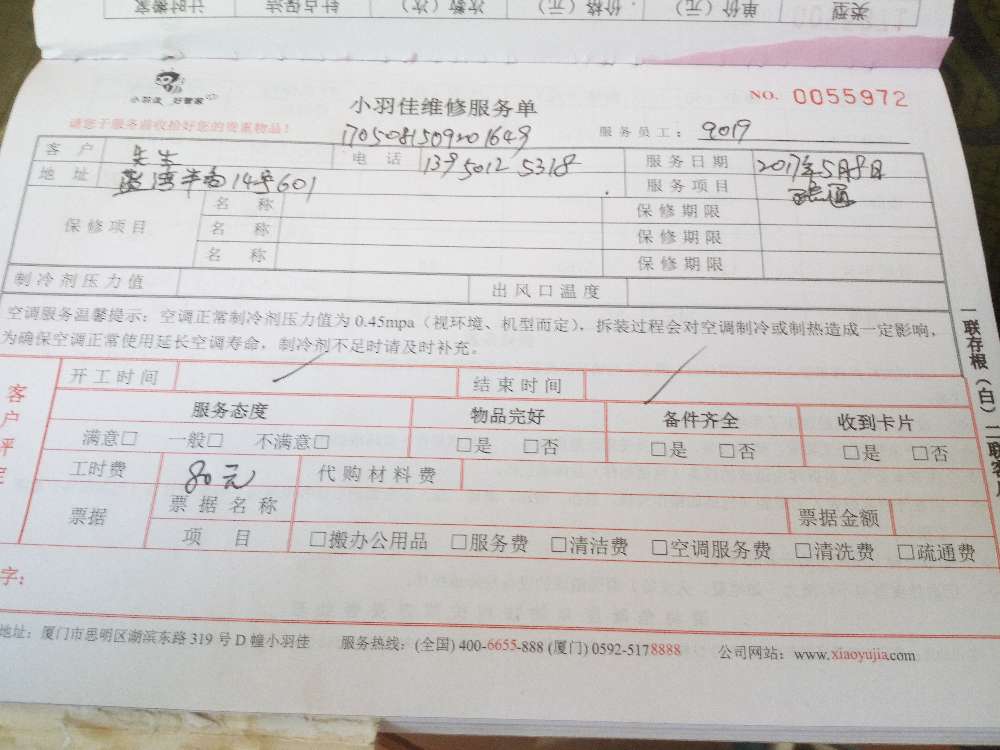 类型 单价（元） 价格（元） 次数（次） 钟点保洁 计时搬家
小羽佳 好管家
小羽佳维修服务单
NO. 0055972
请您于服务前收拾好您的贵重物品！
1705081509201649
服务员工： 9019
客户 先生 电话 13950125318 服务日期 2017年5月8日
地址 14号601 服务项目
保修项目 名称 保修期限
名称 保修期限
名称 保修期限
制冷剂压力值 出风口温度
空调服务温馨提示：空调正常制冷剂压力值为0.45mpa（视环境、机型而定），拆装过程会对空调制冷或制热造成一定影响，
为确保空调正常使用延长空调寿命，制冷剂不足时请及时补充。
开工时间 结束时间
服务态度 物品完好 备件齐全 收到卡片
满意□ 一般□ 不满意□ □是 □否 □是 □否 □是 □否
客户评定
工时费 80元 代购材料费
票据 票据名称 票据金额
项目 □搬办公用品 □服务费 □清洁费 □空调服务费 □清洗费 □疏通费
字：
地址：厦门市思明区湖滨东路319号D幢小羽佳 服务热线：(全国) 400-6655-888 (厦门) 0592-5178888 公司网站：www.xiaoyujia.com
一联存根（白）二联客户